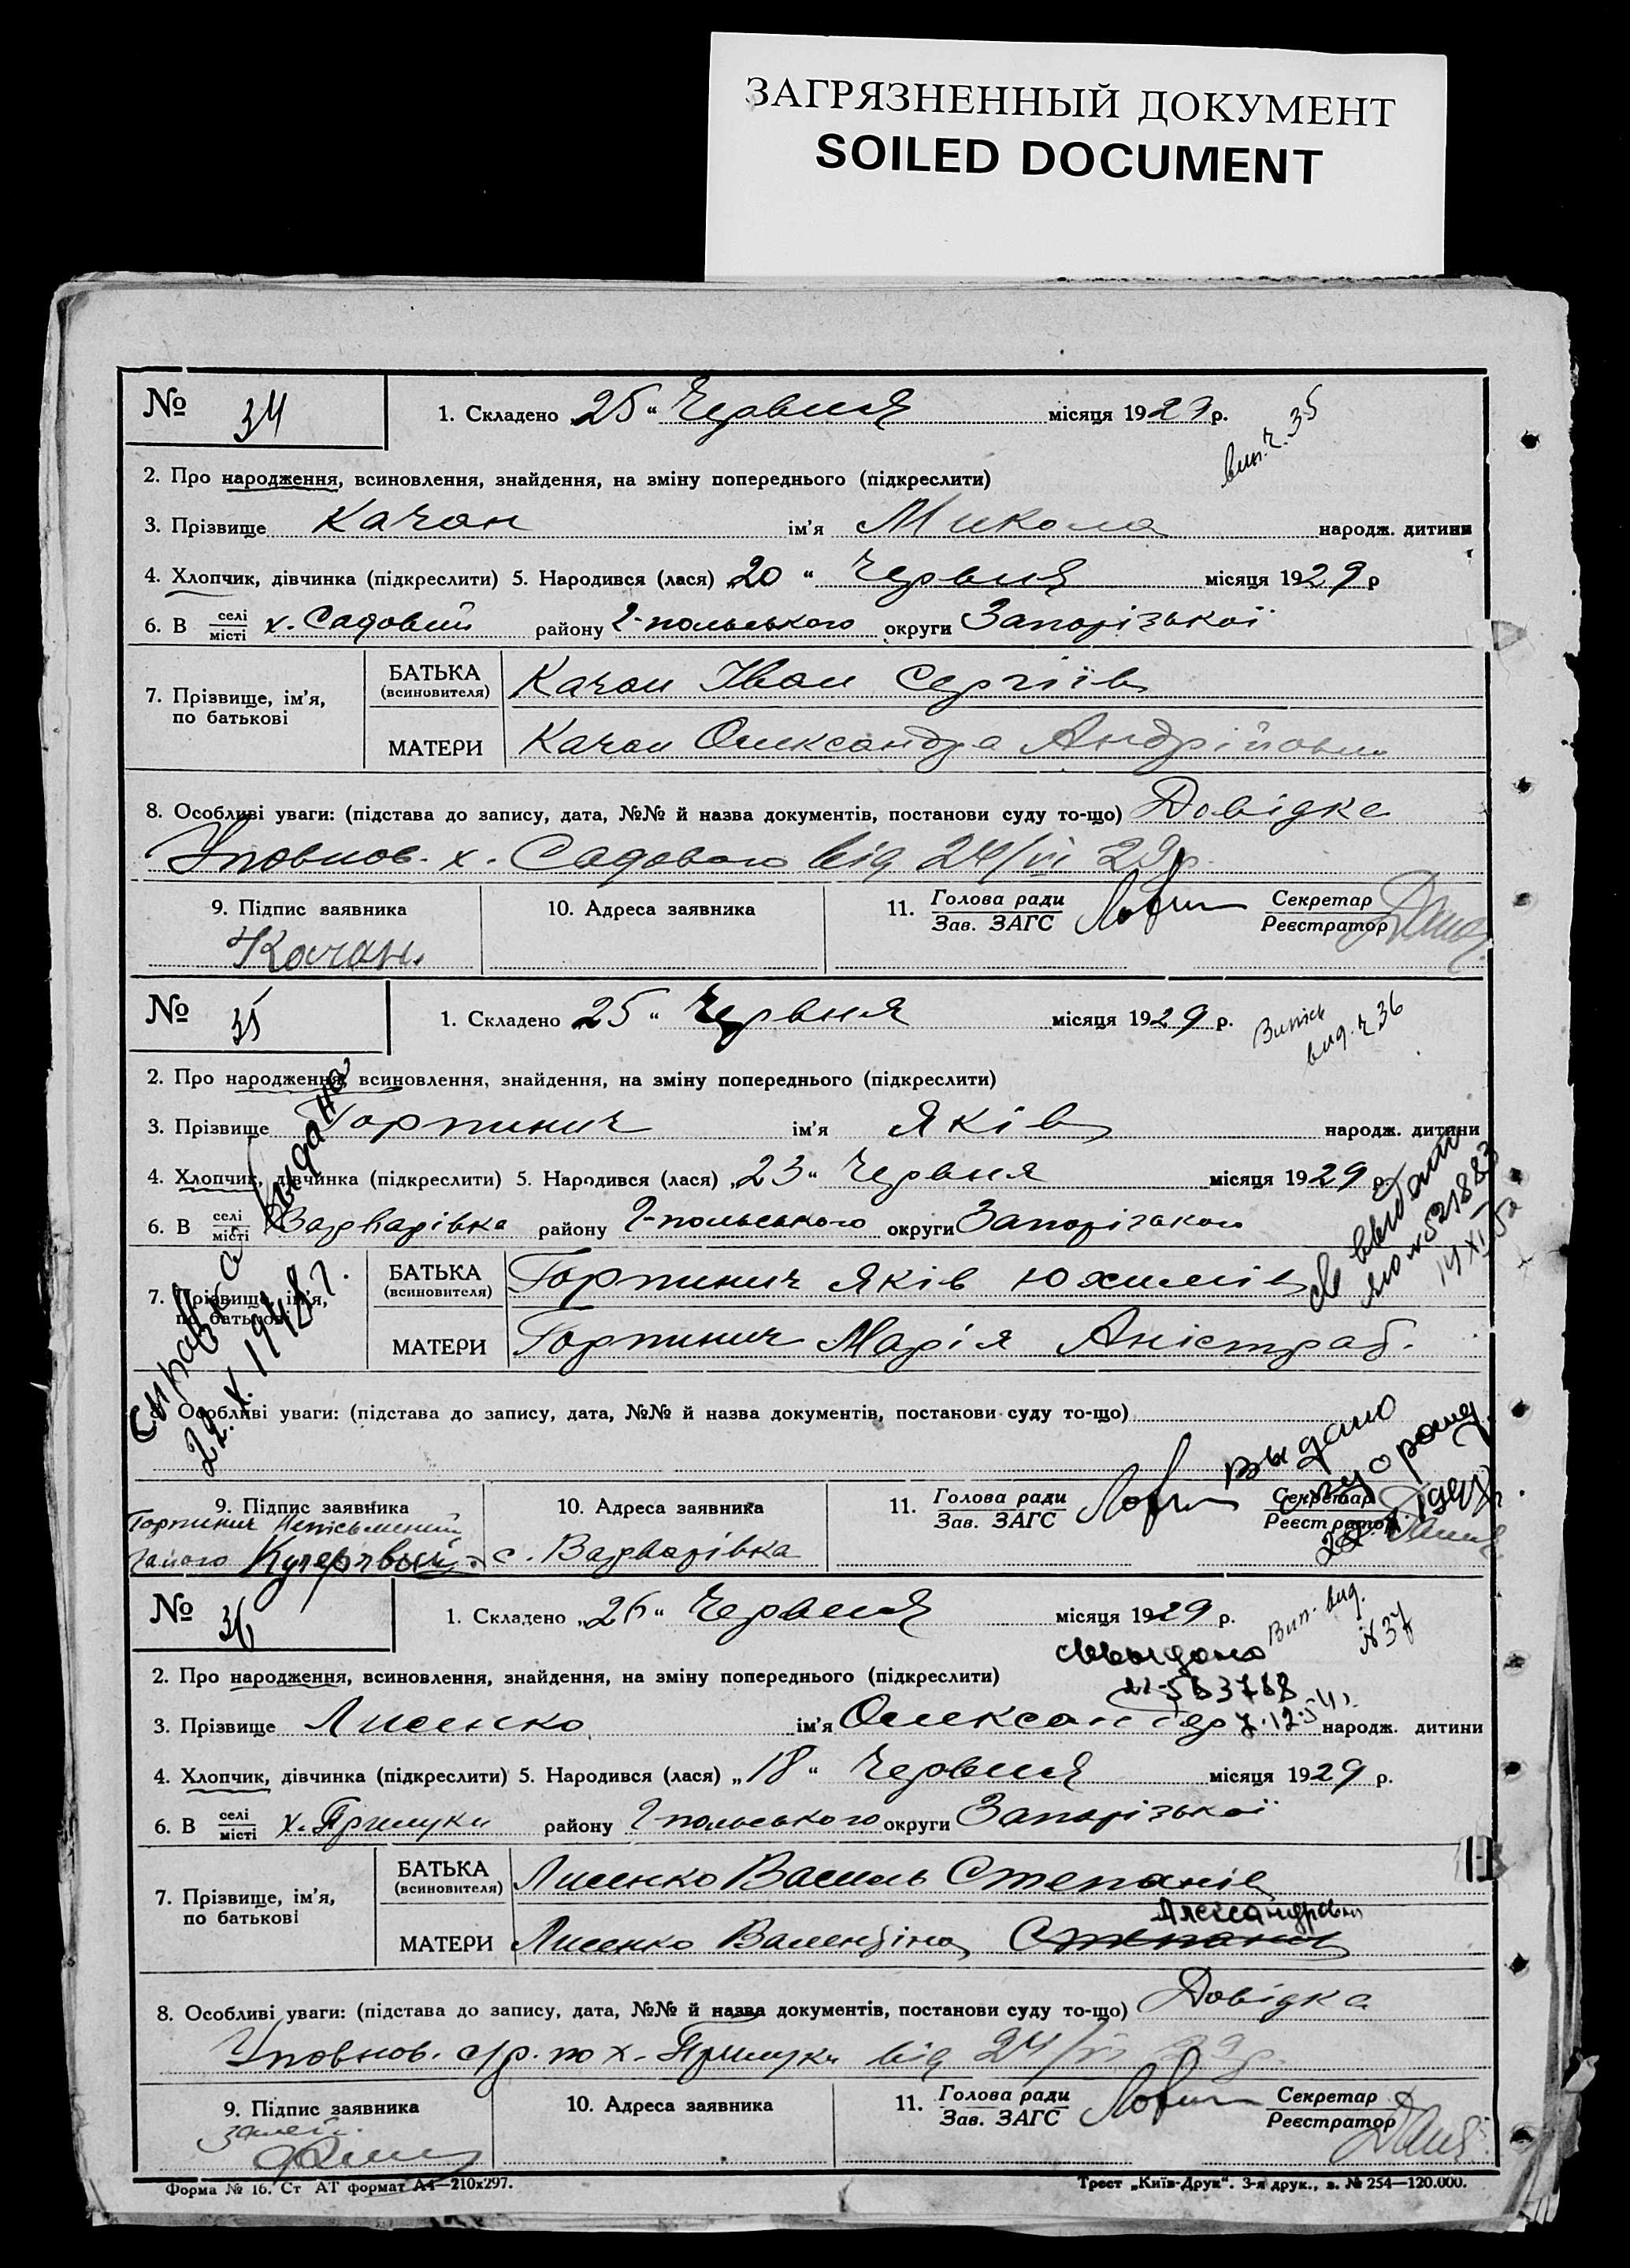 ЗАГРЯЗНЕННЫЙ ДОКУМЕНТ
SOILED DOCUMENT
№ 34
1. Складено „25“ Червня місяця 1929 р.
вип. ч. 35
2. Про народження, всиновлення, знайдення, на зміну попереднього (підкреслити)
3. Прізвище Качан ім'я Микола народж. дитини
4. Хлопчик, дівчинка (підкреслити) 5. Народився (лася) „20“ Червня місяця 1929 р
6. В селі місті х. Садовий району Г-польського округи Запорізької
7. Прізвище, ім'я, по батькові
БАТЬКА (всиновителя) Качан Іван Сергіїв
МАТЕРИ Качан Олександра Андрійовна
8. Особливі уваги: (підстава до запису, дата, №№ й назва документів, постанови суду то-що) Довідка
Уповнов. х. Садового від 24/VI 29р.
9. Підпис заявника
10. Адреса заявника
11. Голова ради Зав. ЗАГС
Секретар Реєстратор
Качан.
№ 35
1. Складено „25“ Червня місяця 1929 р.
Випись вид. ч 36
2. Про народження, всиновлення, знайдення, на зміну попереднього (підкреслити)
3. Прізвище Горпинич ім'я Яків народж. дитини
4. Хлопчик, дівчинка (підкреслити) 5. Народився (лася) „23“ Червня місяця 1929 р
6. В селі місті Варварівка району Г-польського округи Запорізького
7. Прізвище, ім'я, по батькові
БАТЬКА (всиновителя) Горпинич Яків Юхимів
МАТЕРИ Горпинич Марія Аністраб.
Справка выдана
22.X.1948 г.
8. Особливі уваги: (підстава до запису, дата, №№ й назва документів, постанови суду то-що)
выдано
9. Підпис заявника
10. Адреса заявника
11. Голова ради Зав. ЗАГС
Секретар Реєстратор
Горпинич неписьменний
с. Варварівка
№ 36
1. Складено „26“ Червня місяця 1929 р.
Вип. вид. N 37
2. Про народження, всиновлення, знайдення, на зміну попереднього (підкреслити)
3. Прізвище Лисенко ім'я Олександр народж. дитини
4. Хлопчик, дівчинка (підкреслити) 5. Народився (лася) „18“ Червня місяця 1929 р.
6. В селі місті х. Прилуки району Г-польського округи Запорізької
7. Прізвище, ім'я, по батькові
БАТЬКА (всиновителя) Лисенко Василь Степанів
Александровн
МАТЕРИ Лисенко Валентіна Степанів
8. Особливі уваги: (підстава до запису, дата, №№ й назва документів, постанови суду то-що) Довідка
Уповнов. с/р. по х. Прилуки від 24/VI 29р.
9. Підпис заявника
10. Адреса заявника
11. Голова ради Зав. ЗАГС
Секретар Реєстратор
Форма № 16. Ст АТ формат А4—210х297.
Трест „Київ-Друк“. 3-я друк., з. № 254—120.000.